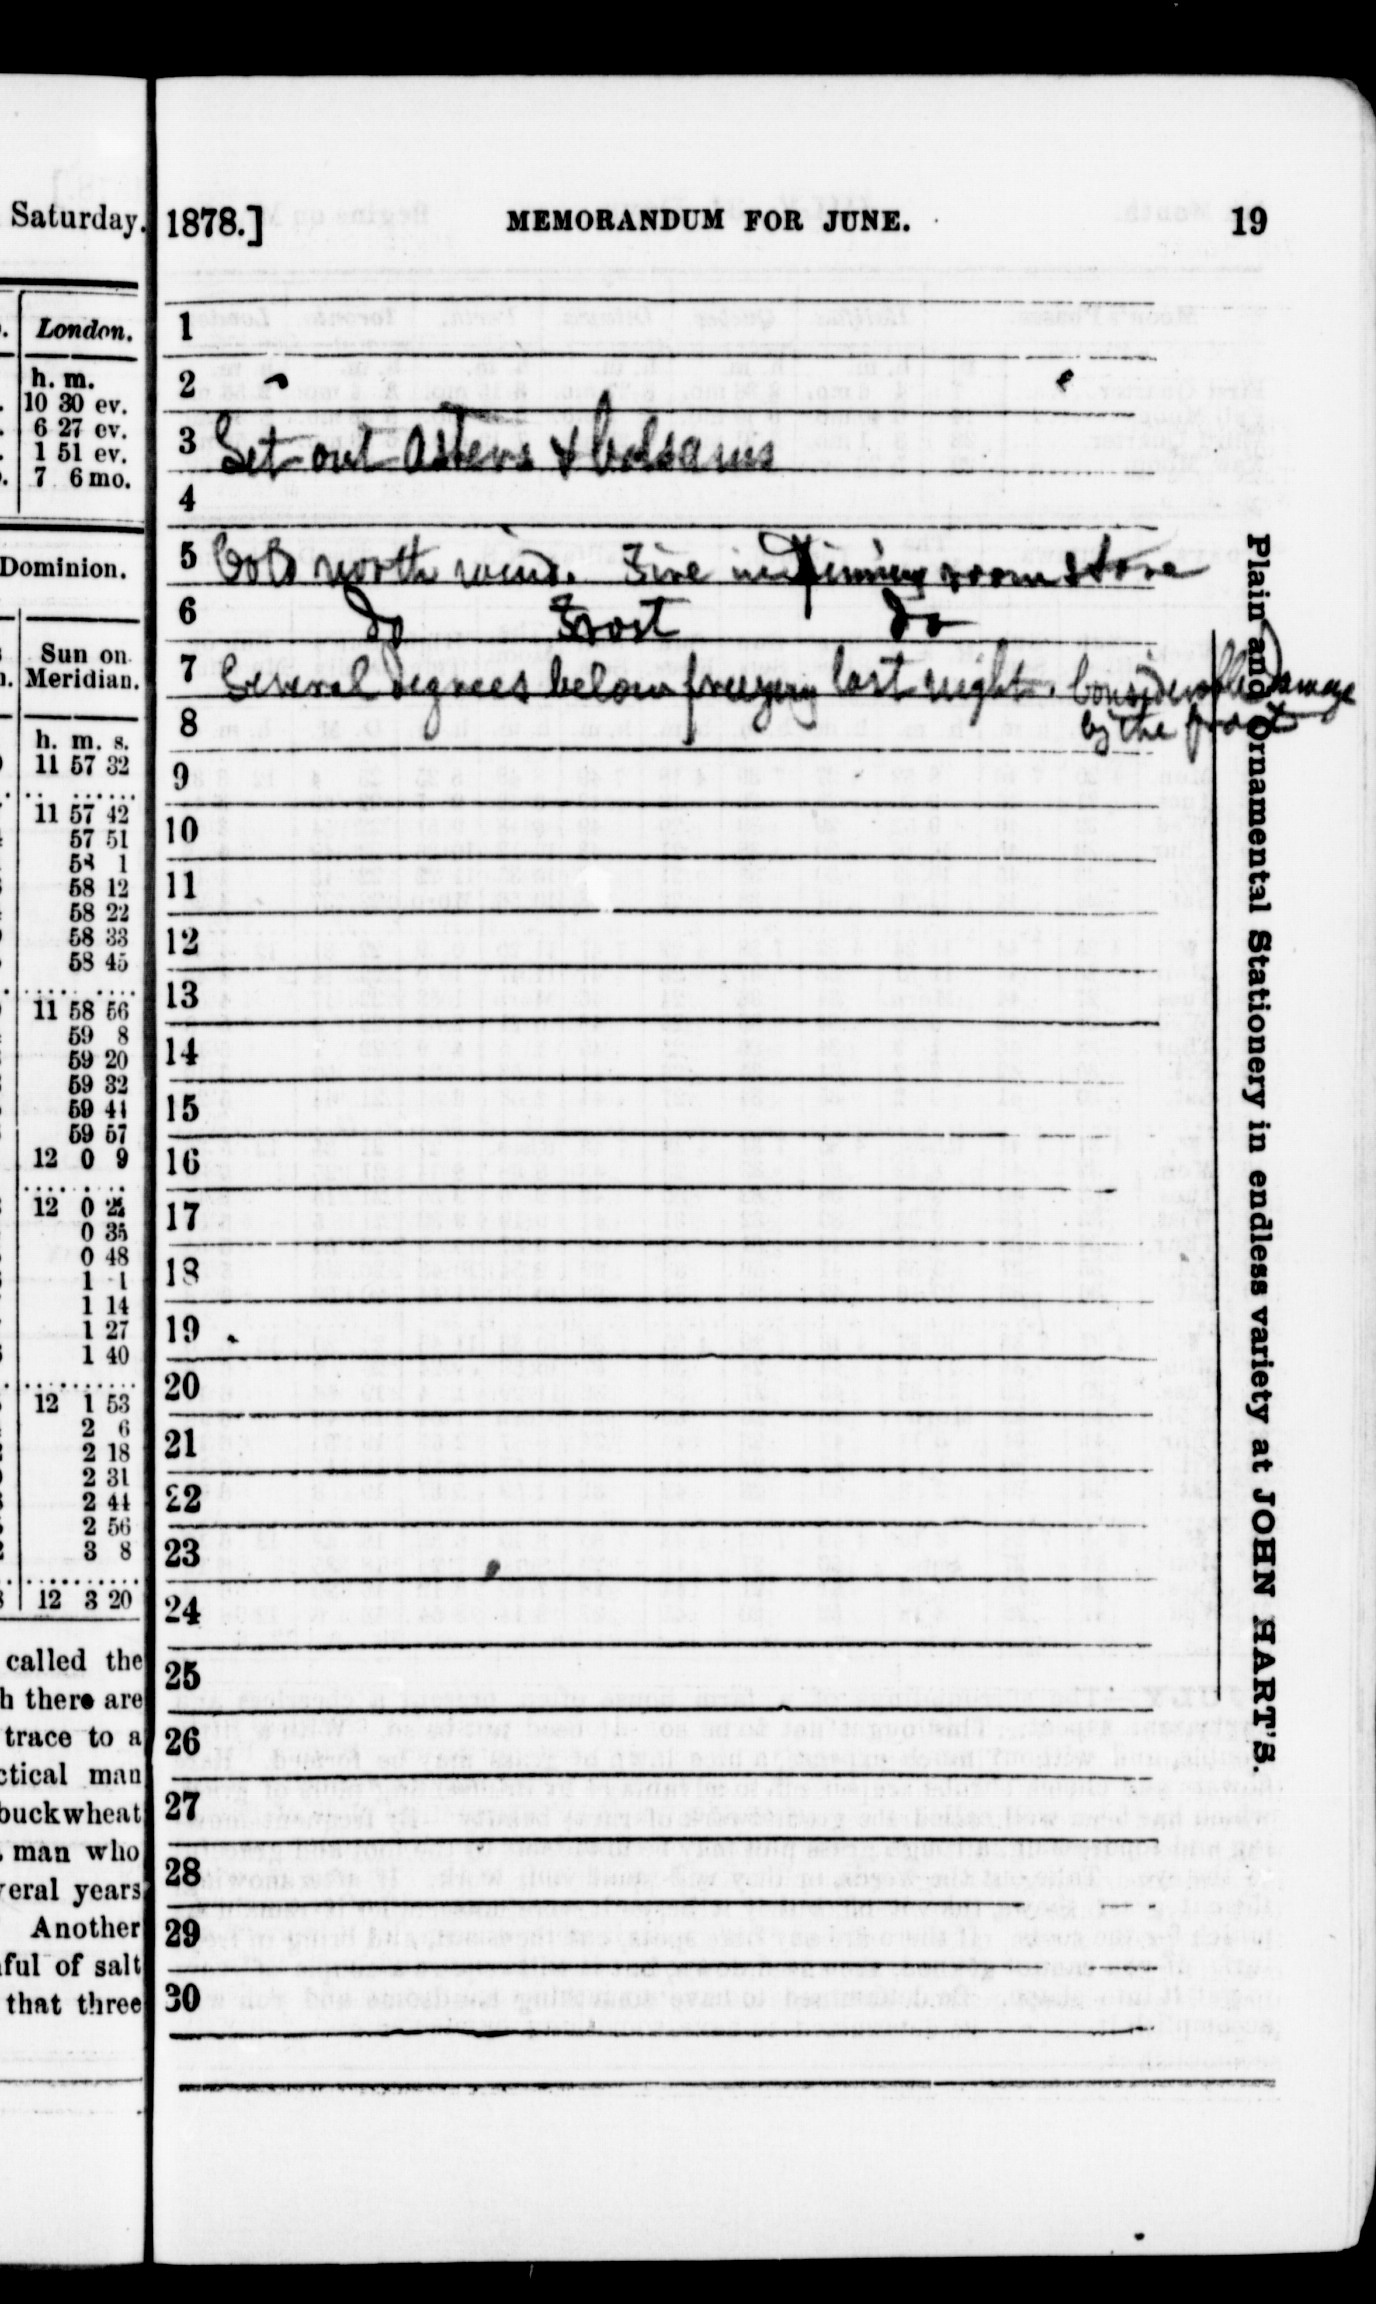 Saturday.
London.
h. m.
10 30 ev.
6 27 ev.
1 51 ev.
7 6 mo.
Dominion.
Sun on
Meridian.
h. m. s.
11 57 32
11 57 42
57 51
58 1
58 12
58 22
58 33
58 45
11 58 56
59 8
59 20
59 32
59 44
59 57
12 0 9
12 0 22
0 35
0 48
1 1
1 14
1 27
1 40
12 1 53
2 6
2 18
2 31
2 44
2 56
3 8
12 3 20
called the
there are
trace to a
man
buckwheat
man who
years
Another
of salt
that three
1878.] MEMORANDUM FOR JUNE. 19
1
2
3 Set out asters & balsams
4
5 Cold north wind. Fire in dinning room stove
6 do Frost do
7 Several degrees below freezing last night. Considerable damage
8 by the frost
9
10
11
12
13
14
15
16
17
18
19
20
21
22
23
24
25
26
27
28
29
30
Plain and Ornamental Stationery in endless variety at JOHN HART'S.